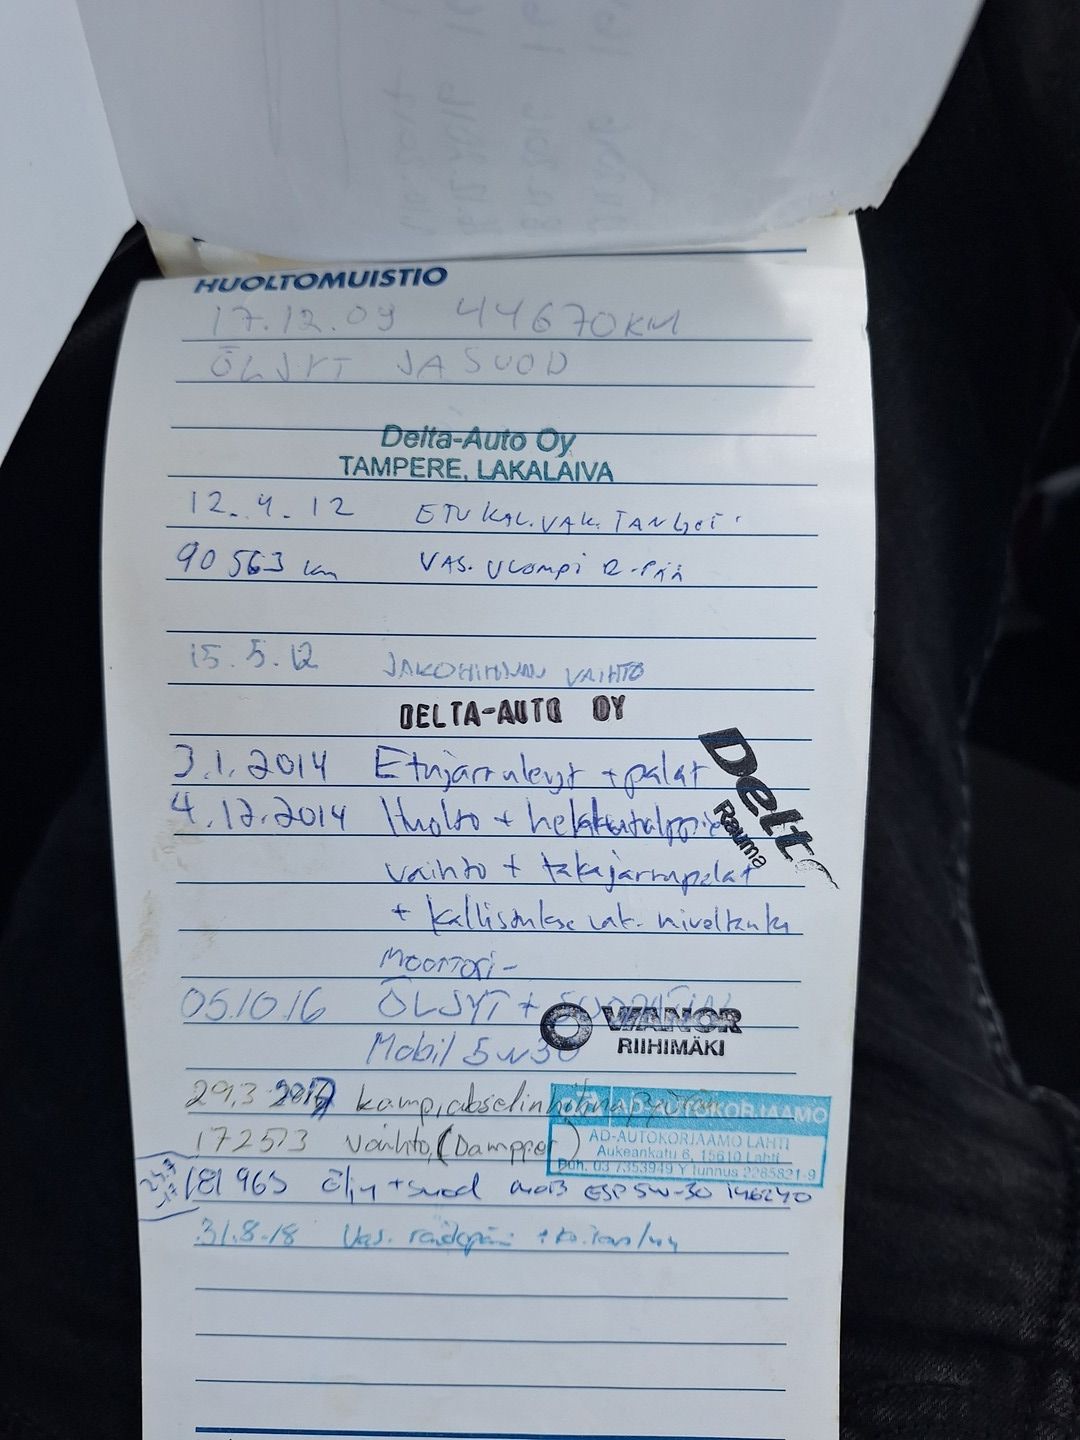 HUOLTOMUISTIO
17.12.09 44670KM
ÖLJYT JA SUOD
Delta-Auto Oy
TAMPERE, LAKALAIVA
12.4.12 ETU KAL.VAK. TANGOT
90 563 km VAS. ULOMPI R-PÄÄ
15.5.12 JAKOHIHNAN VAIHTO
DELTA-AUTO OY
3.1.2014 Etujarrulevyt + palat
Delta
Rauma
4.12.2014 Huolto + hehkutulppien
vaihto + takajarrupalat
+ kallistukse vak. niveltanko
MOOTTORI-
05.10.16 ÖLJYT + SUODATIN
VIANOR
RIIHIMÄKI
Mobil 5w30
29.3 2017 kampiakselin hihnapyörän
AD-AUTOKORJAAMO
172513 vaihto, (Dampper)
AD-AUTOKORJAAMO LAHTI
Aukeankatu 6, 15610 Lahti
Puh. 03 7353949 Y tunnus 2285821-9
181 965 Öljy + suod mob ESP 5W-30 146240
31.8-18 Vas. raidepää +